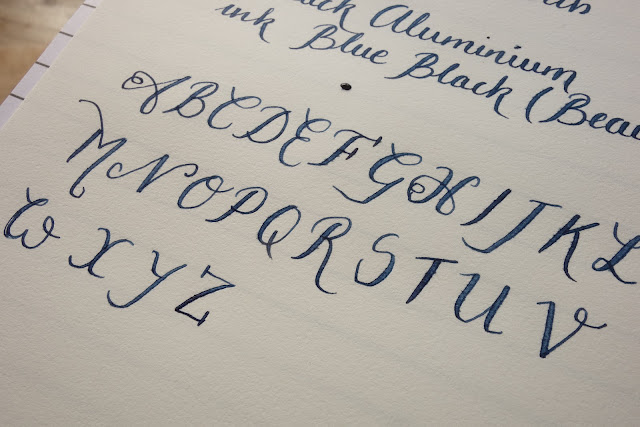 Black Aluminium
ink Blue Black (Beau
A B C D E F G H I J K L
M N O P Q R S T U V
W X Y Z